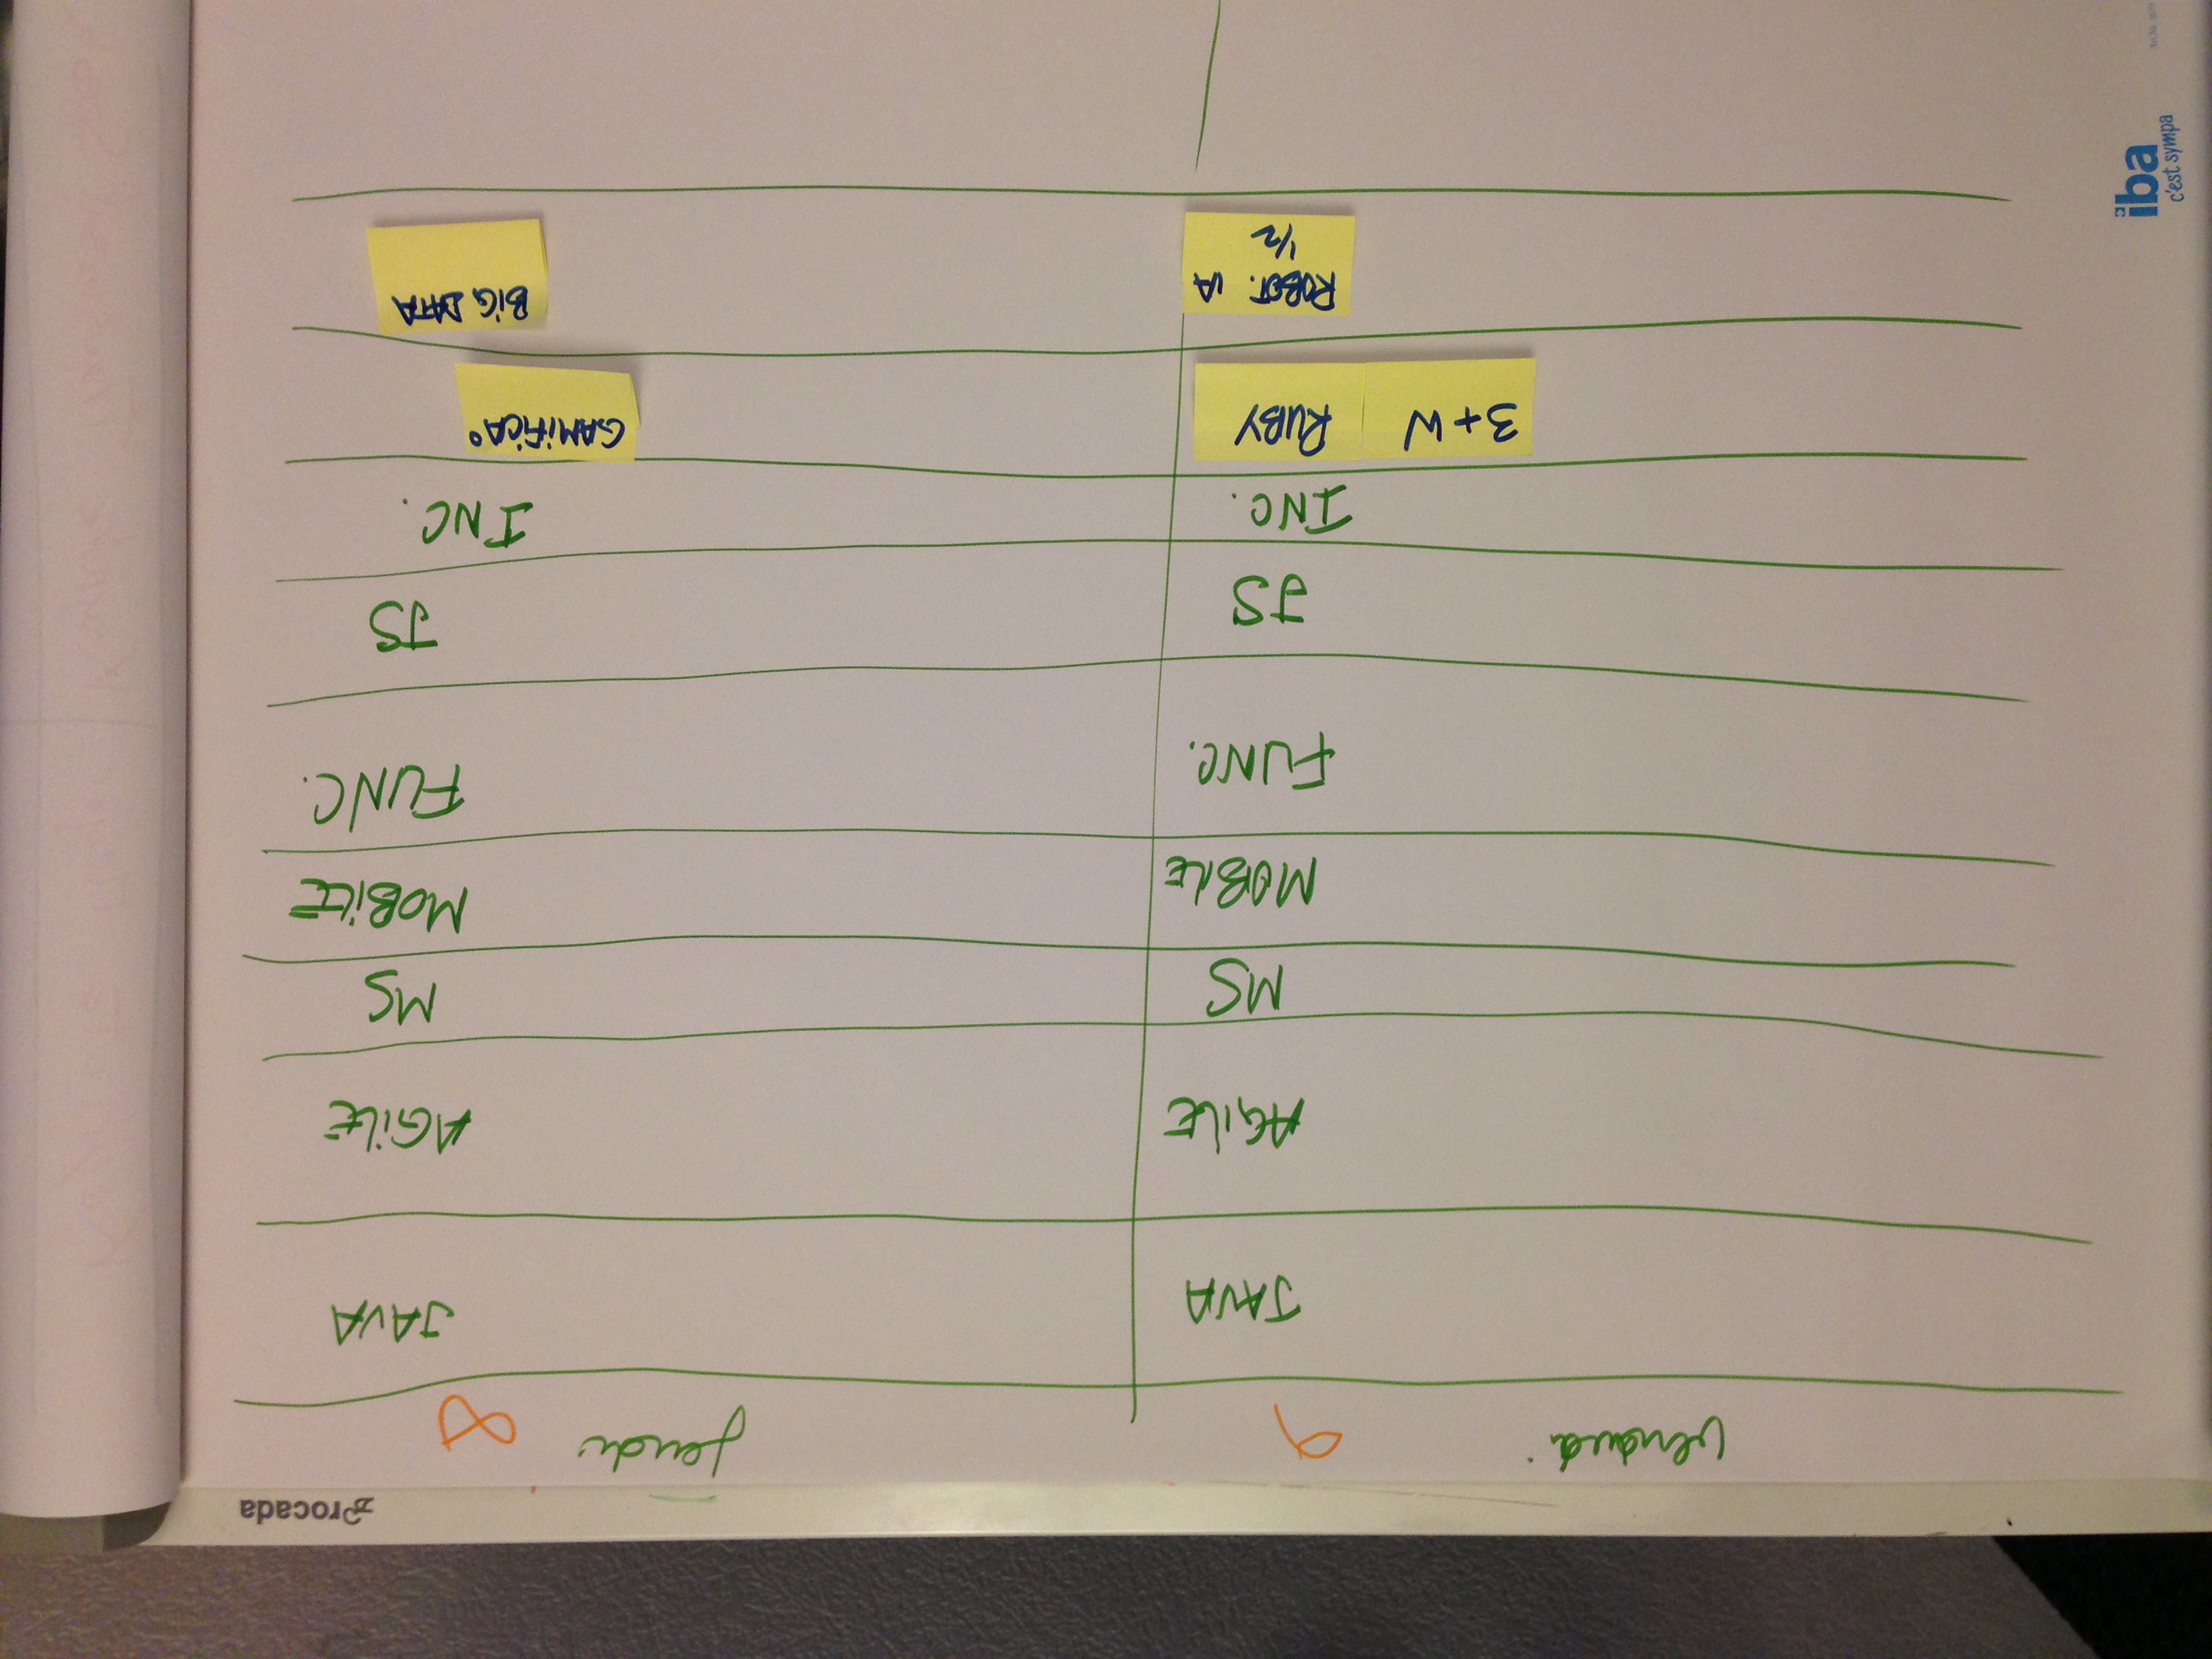 rocada
vendredi 9 jeudi 8
JAVA JAVA
AGiLE AGiLE
MS MS
MOBiLE MOBiLE
FUNC. FUNC.
JS JS
INC. INC.
3+W RUBY GAMiFiCA°
ROBOT. IA BiG DATA
1/2
iba
c'est sympa